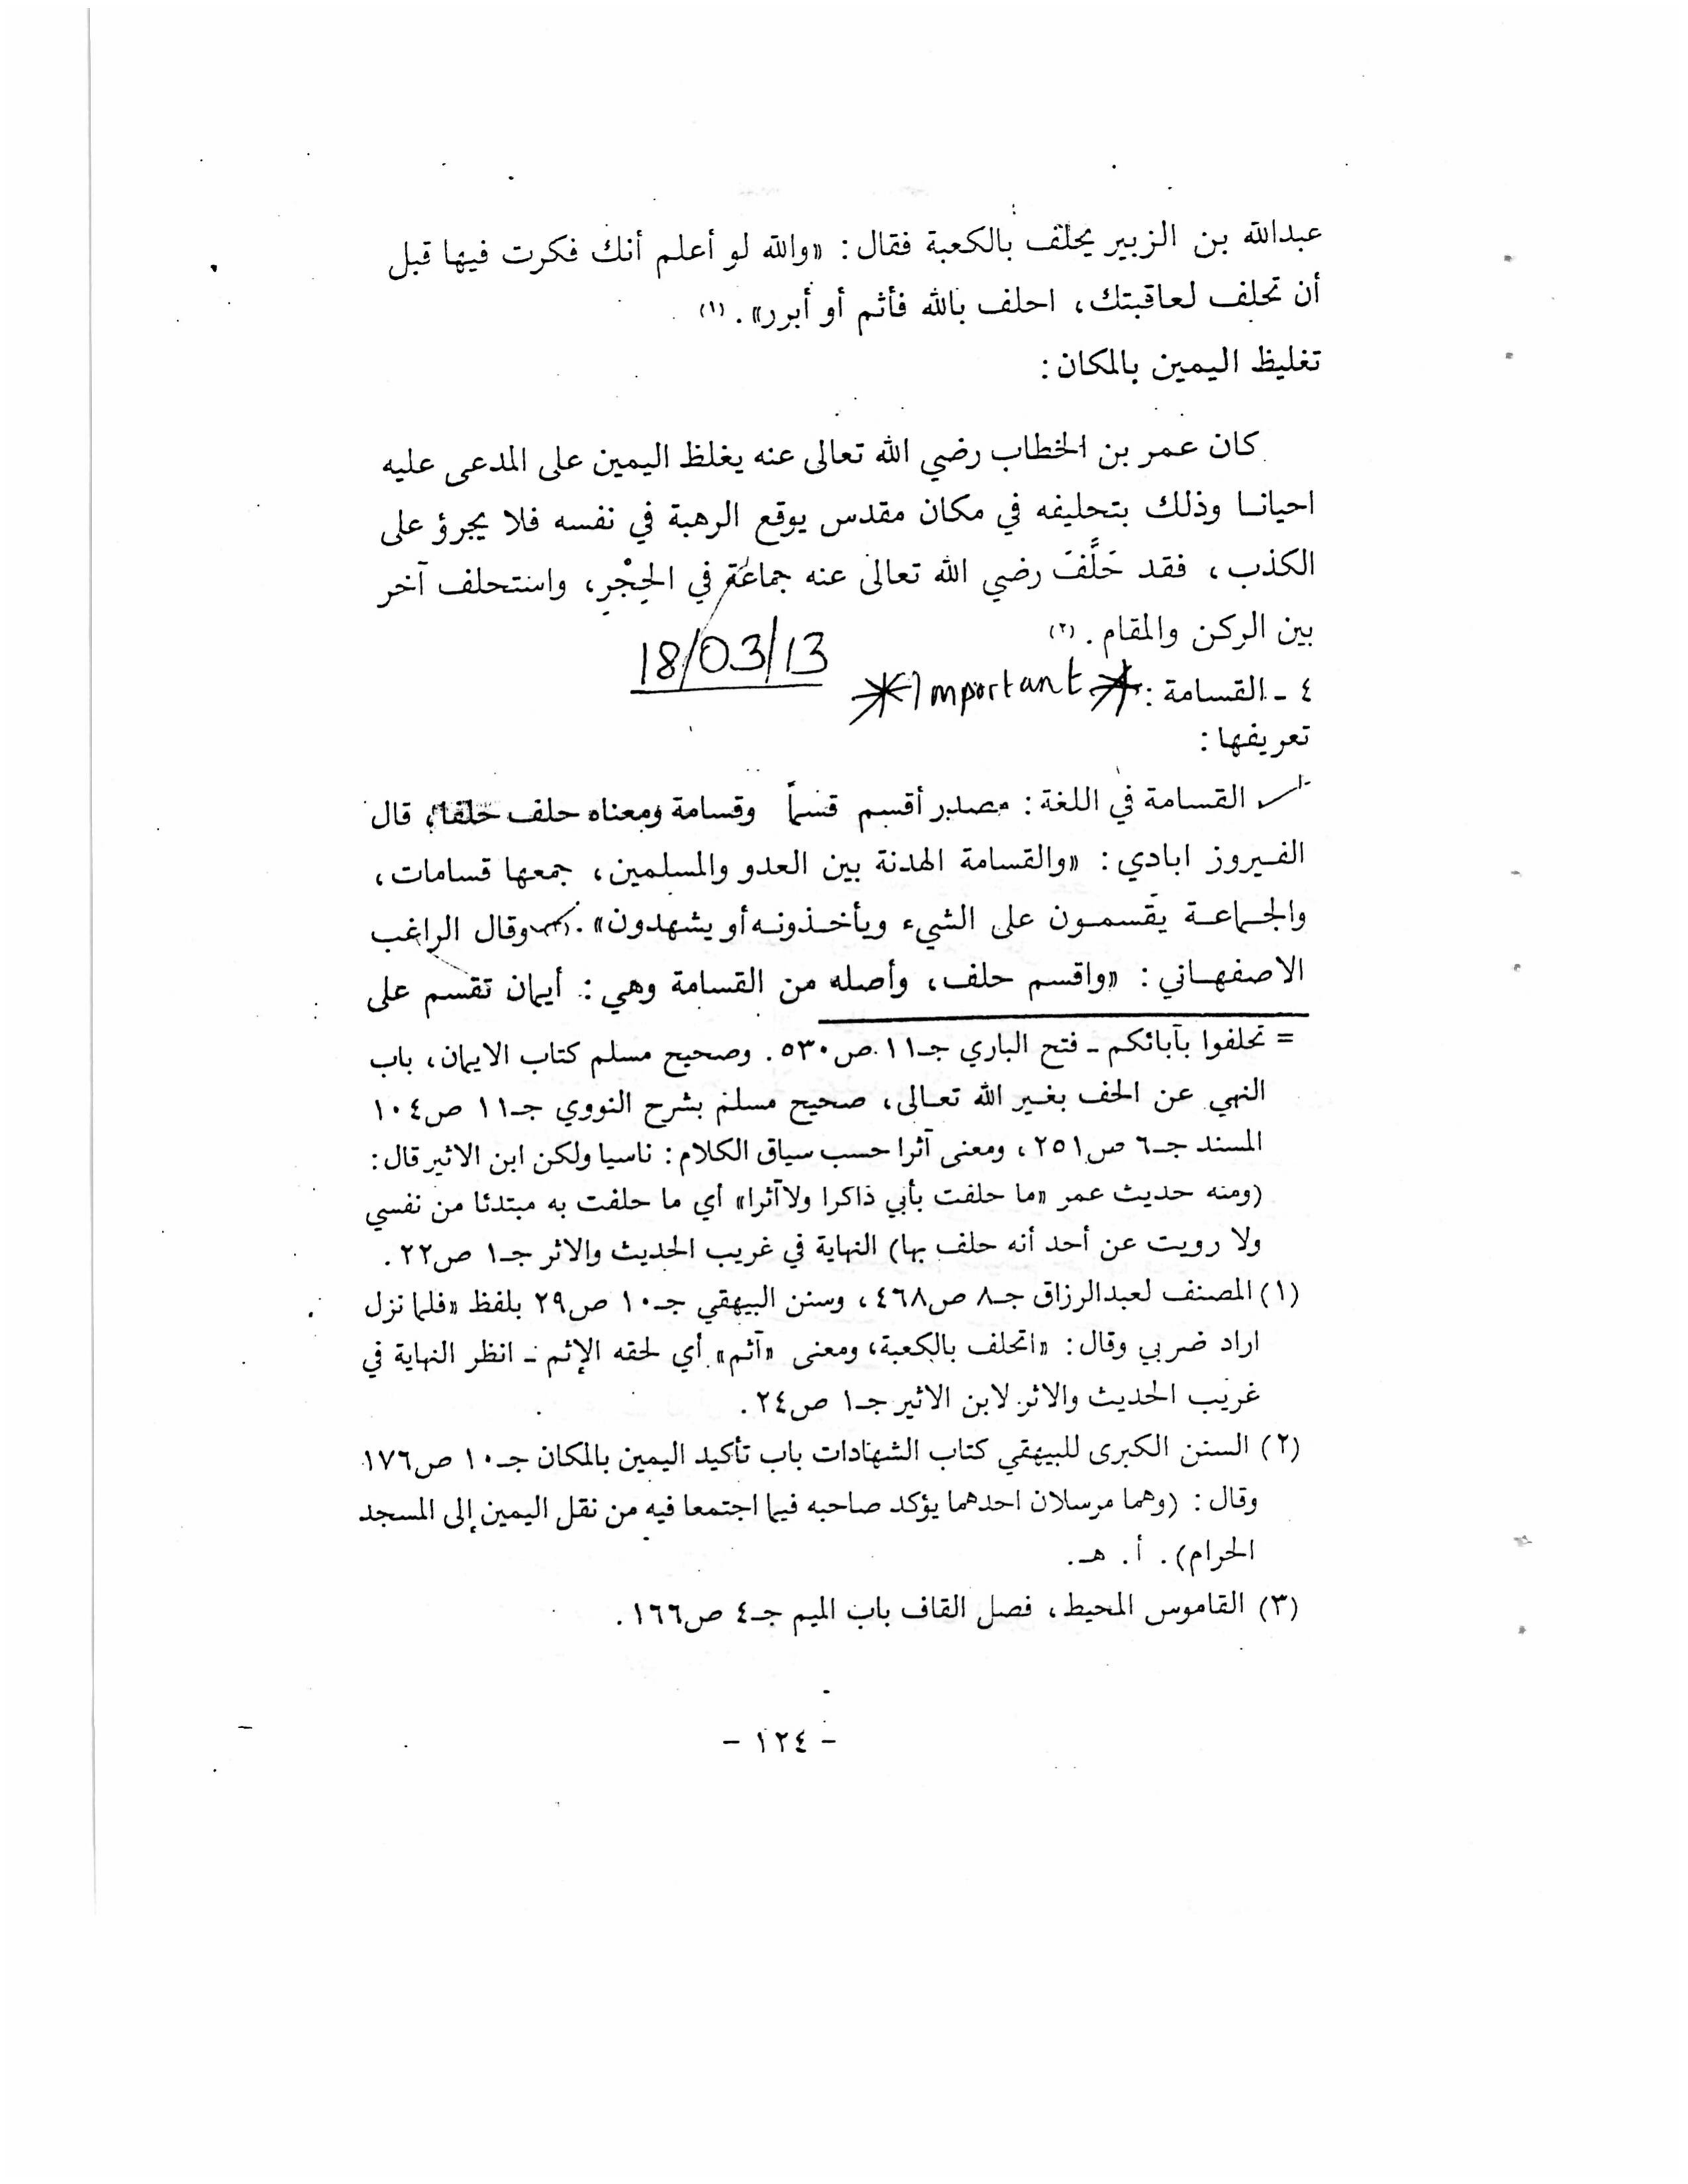 عبدالله بن الزبير يحلف بالكعبة فقال: «والله لو أعلم أنك فكرت فيها قبل
أن تحلف لعاقبتك، احلف بالله فأثم أو أبرر». (١)
تغليظ اليمين بالمكان:
كان عمر بن الخطاب رضي الله تعالى عنه يغلظ اليمين على المدعى عليه
احيانا وذلك بتحليفه في مكان مقدس يوقع الرهبة في نفسه فلا يجرؤ على
الكذب، فقد حَلَّفَ رضي الله تعالى عنه جماعة في الحِجْرِ، واستحلف آخر
بين الركن والمقام. (٢)
18/03/13
٤ - القسامة: *Important*
تعريفها:
القسامة في اللغة: مصدر أقسم قسماً وقسامة ومعناه حلف حلفا، قال
الفيروز ابادي: «والقسامة الهدنة بين العدو والمسلمين، جمعها قسامات،
والجماعة يقسمون على الشيء ويأخذونه أو يشهدون». (٣) وقال الراغب
الاصفهاني: «واقسم حلف، وأصله من القسامة وهي: أيمان تقسم على
= تحلفوا بآبائكم - فتح الباري جـ١١ ص٥٣٠. وصحيح مسلم كتاب الايمان، باب
النهي عن الحف بغير الله تعالى، صحيح مسلم بشرح النووي جـ١١ ص١٠٤
المسند جـ٦ ص٢٥١، ومعنى آثرا حسب سياق الكلام: ناسيا ولكن ابن الاثير قال:
(ومنه حديث عمر «ما حلفت بأبي ذاكرا ولا آثرا» أي ما حلفت به مبتدئا من نفسي
ولا رويت عن أحد أنه حلف بها) النهاية في غريب الحديث والاثر جـ١ ص٢٢.
(١) المصنف لعبدالرزاق جـ٨ ص٤٦٨، وسنن البيهقي جـ١٠ ص٢٩ بلفظ «فلما نزل
اراد ضربي وقال: «اتحلف بالكعبة، ومعنى «آثم» أي لحقه الإثم - انظر النهاية في
غريب الحديث والاثر لابن الاثير جـ١ ص٢٤.
(٢) السنن الكبرى للبيهقي كتاب الشهادات باب تأكيد اليمين بالمكان جـ١٠ ص١٧٦
وقال: (وهما مرسلان احدهما يؤكد صاحبه فيما اجتمعا فيه من نقل اليمين إلى المسجد
الحرام). أ. هـ.
(٣) القاموس المحيط، فصل القاف باب الميم جـ٤ ص١٦٦.
- ١٢٤ -